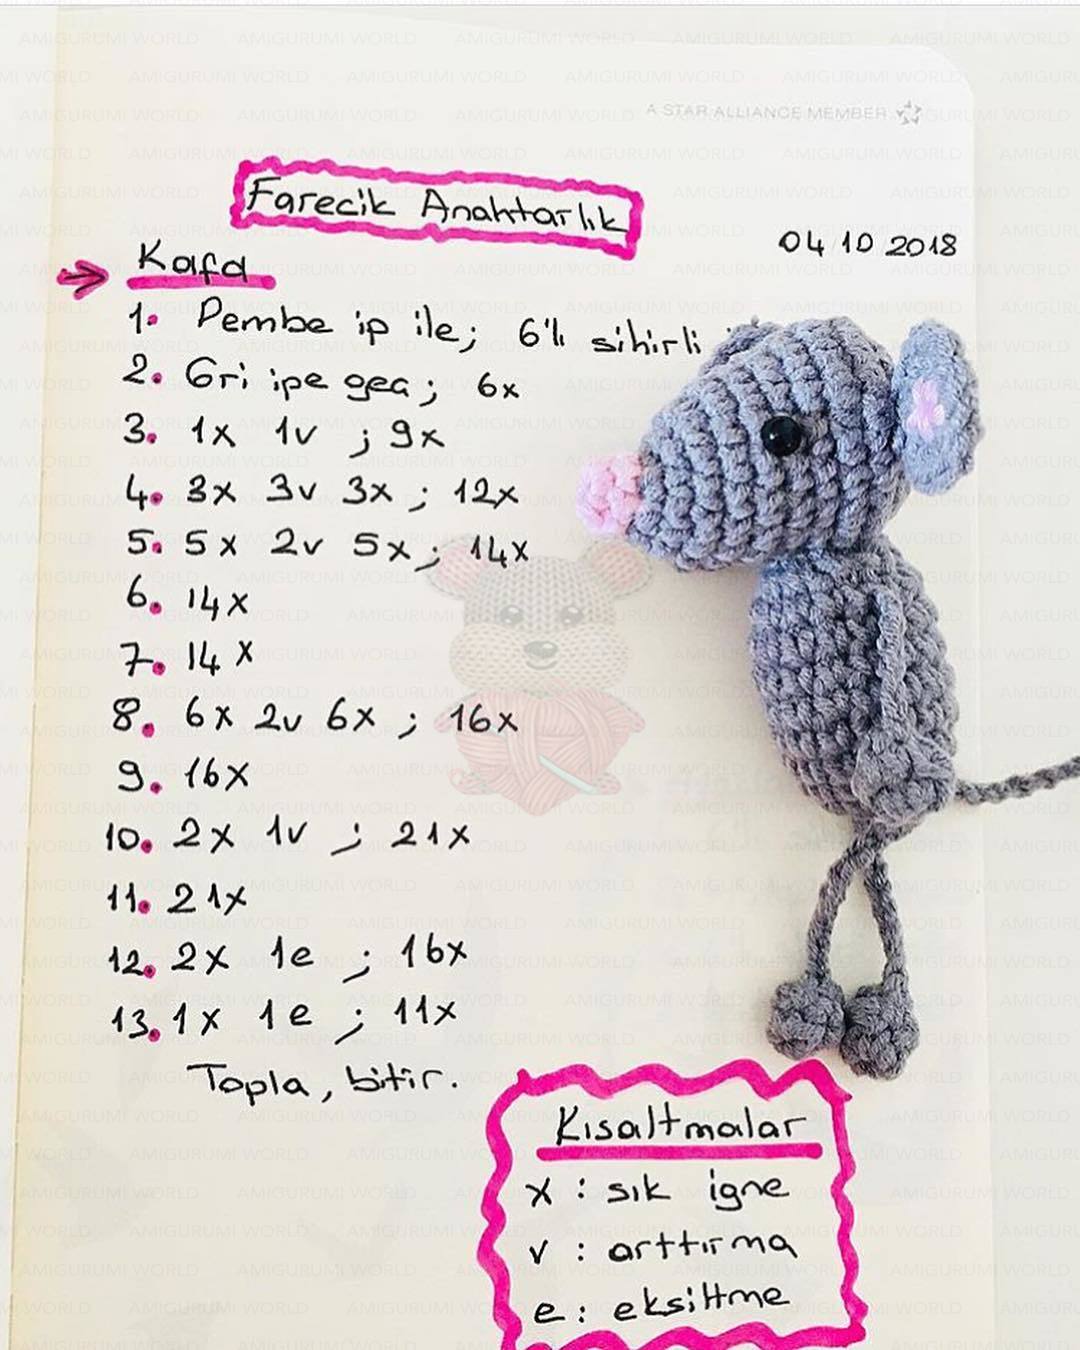 A STAR ALLIANCE MEMBER
Farecik Anahtarlık
04/10/2018
Kafa
1. Pembe ip ile; 6'lı sihirli
2. Gri ipe geç; 6x
3. 1x 1v ; 9x
4. 3x 3v 3x ; 12x
5. 5x 2v 5x ; 14x
6. 14x
7. 14x
8. 6x 2v 6x ; 16x
9. 16x
10. 2x 1v ; 21x
11. 21x
12. 2x 1e ; 16x
13. 1x 1e ; 11x
Topla, bitir.
Kısaltmalar
x : sık igne
v : arttırma
e : eksiltme
AMIGURUMI WORLD